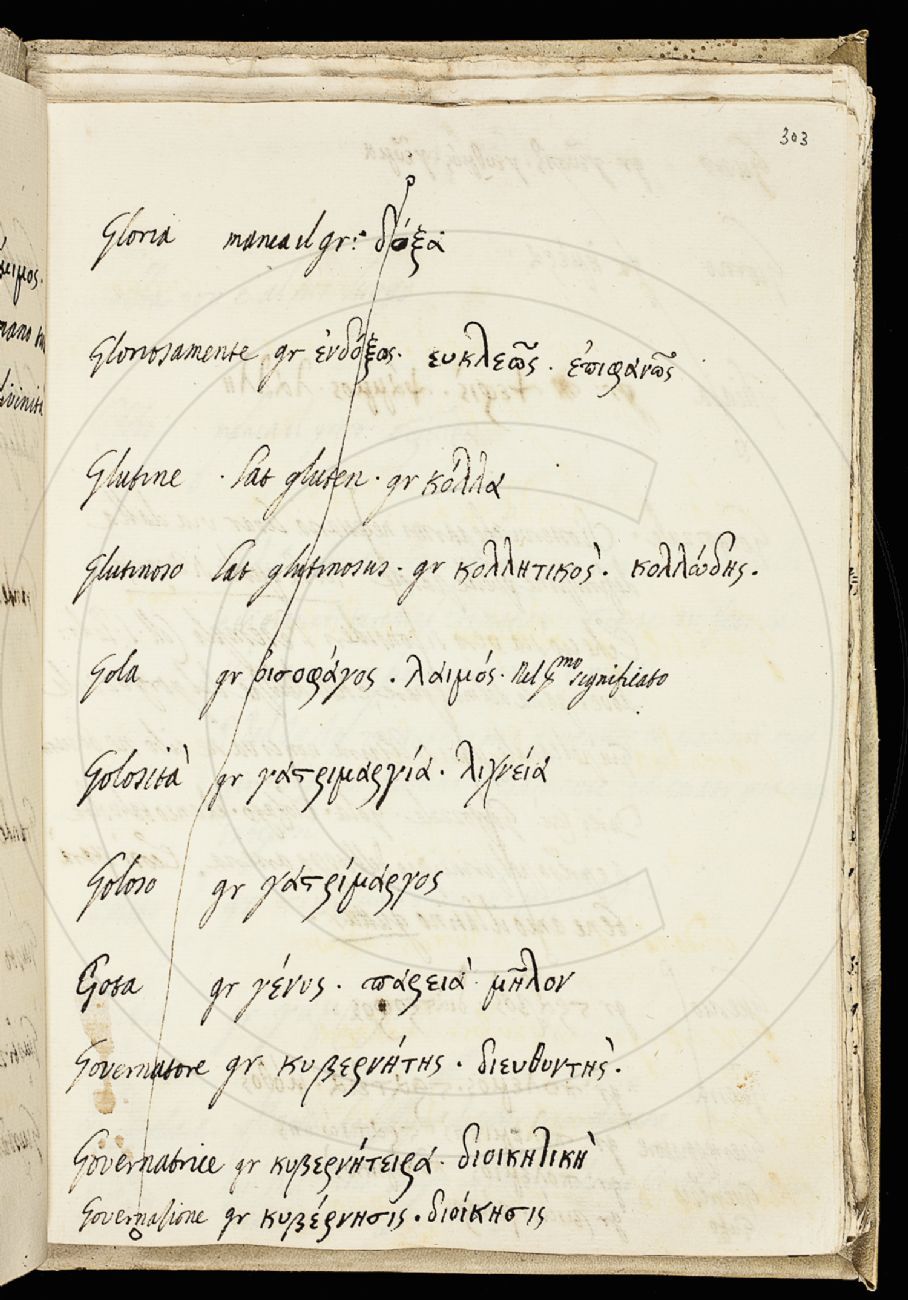 303
Gloria manca il gr: δόξα
Gloriosamente gr ἐνδόξως. ευκλεῶς. ἐπιφανῶς
Glutine. Lat gluten. gr κόλλα
Glutinoso Lat glutinosus. gr κολλητικὸς. κολλώδης.
Gola gr οισοφάγος. λαιμός. Nel significato
Golosità gr γάτριμαργία. λιχνεία
Goloso gr γάτρίμάργος
Gota gr γένυς. παρειὰ. μῆλον
Governatore gr κυβερνήτης. διευθυντὴς.
Governatrice gr κυβερνήτειρα. διοικητικὴ
Governazione gr κυβέρνησις. διοίκησις